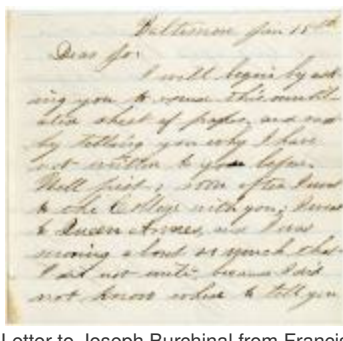 Baltimore Jan 15th
Dear Jo:
I will begin by ask-
ing you to excuse this mutil-
ated sheet of paper, and end
by telling you why I have
not written to you before.
Well first, soon after I went
to the College with you, I went
to Queen Annes, and I was
moving about so much that
I did not write because I did
not know where to tell you
Letter to Joseph Burchinal from Francis